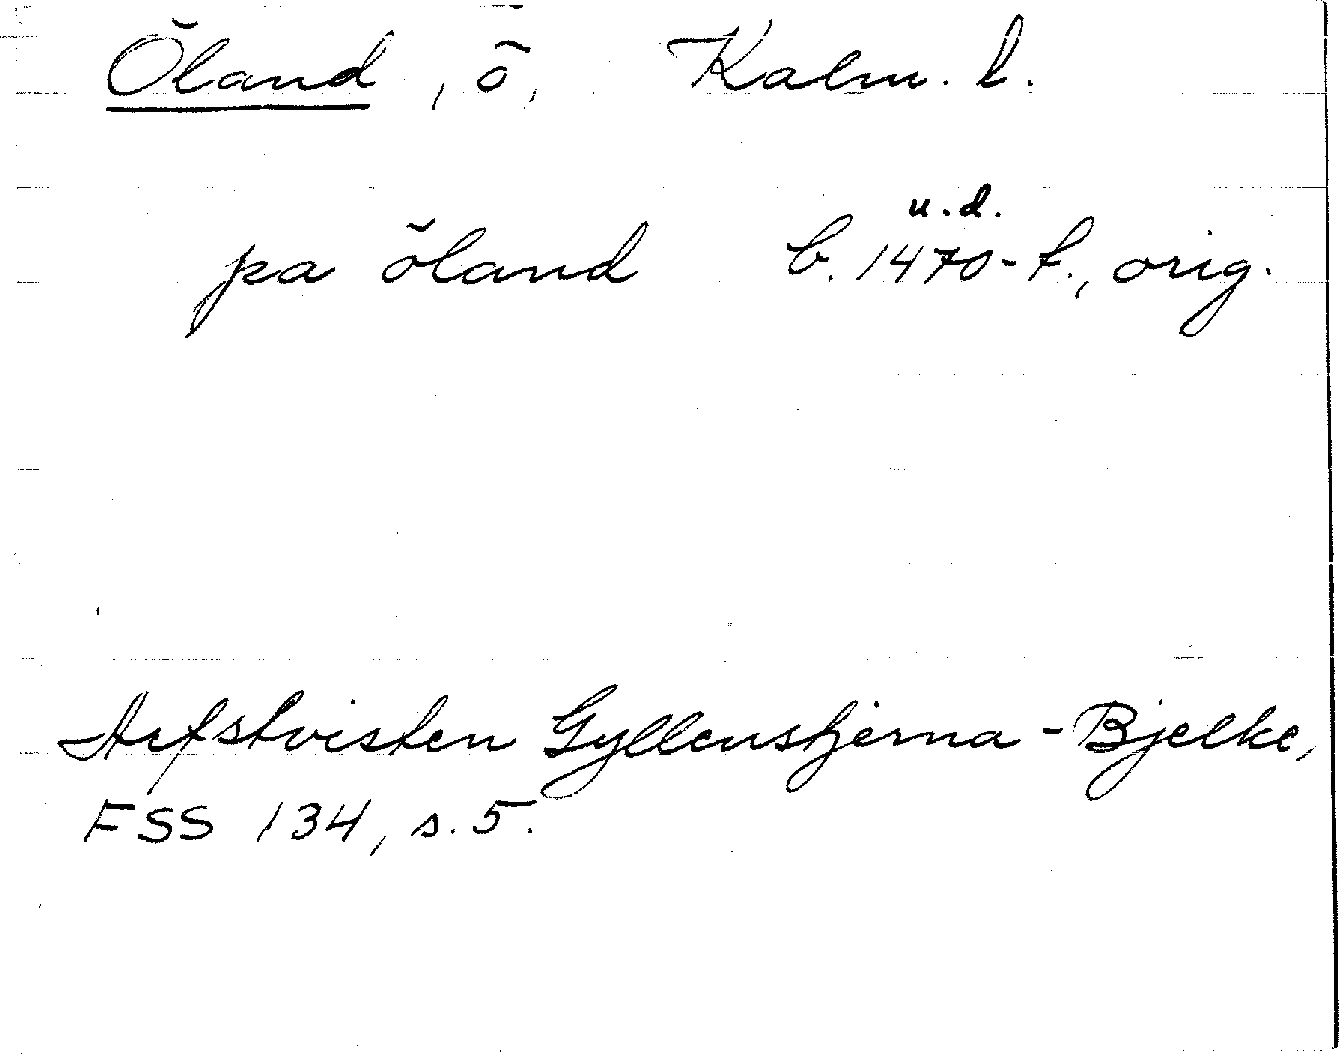 Öland, ö, Kalm. l.
u.d.
pa öland b. 1470-t., orig.
Arfstvisten Gyllenstjerna-Bjelke,
FSS 134, s. 5.